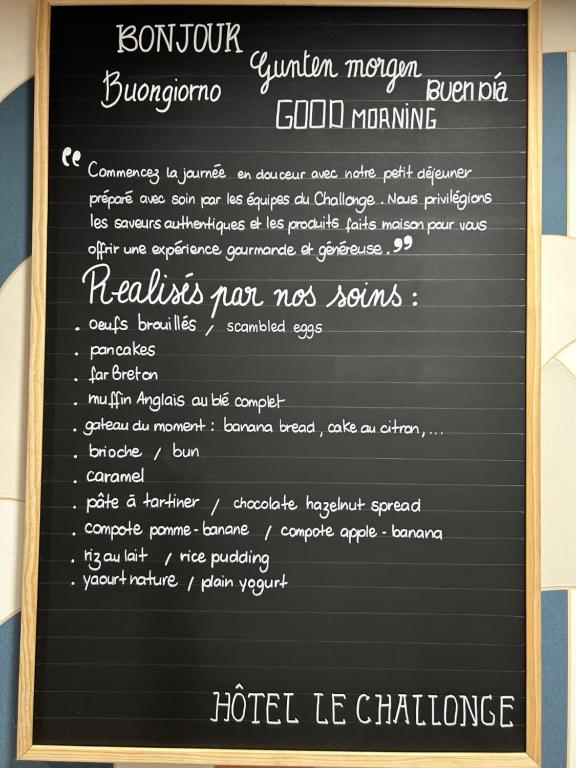 BONJOUR
Gunten morgen
Buongiorno
BUEN DÍA
GOOD MORNING
“ Commencez la journée en douceur avec notre petit déjeuner
préparé avec soin par les équipes du Challonge. Nous privilégions
les saveurs authentiques et les produits faits maison pour vous
offrir une expérience gourmande et généreuse. ”
Realisés par nos soins :
. oeufs brouillés / scambled eggs
. pancakes
. far Breton
. muffin Anglais au blé complet
. gateau du moment : banana bread, cake au citron,...
. brioche / bun
. caramel
. pâte à tartiner / chocolate hazelnut spread
. compote pomme-banane / compote apple-banana
. riz au lait / rice pudding
. yaourt nature / plain yogurt
HÔTEL LE CHALLONGE